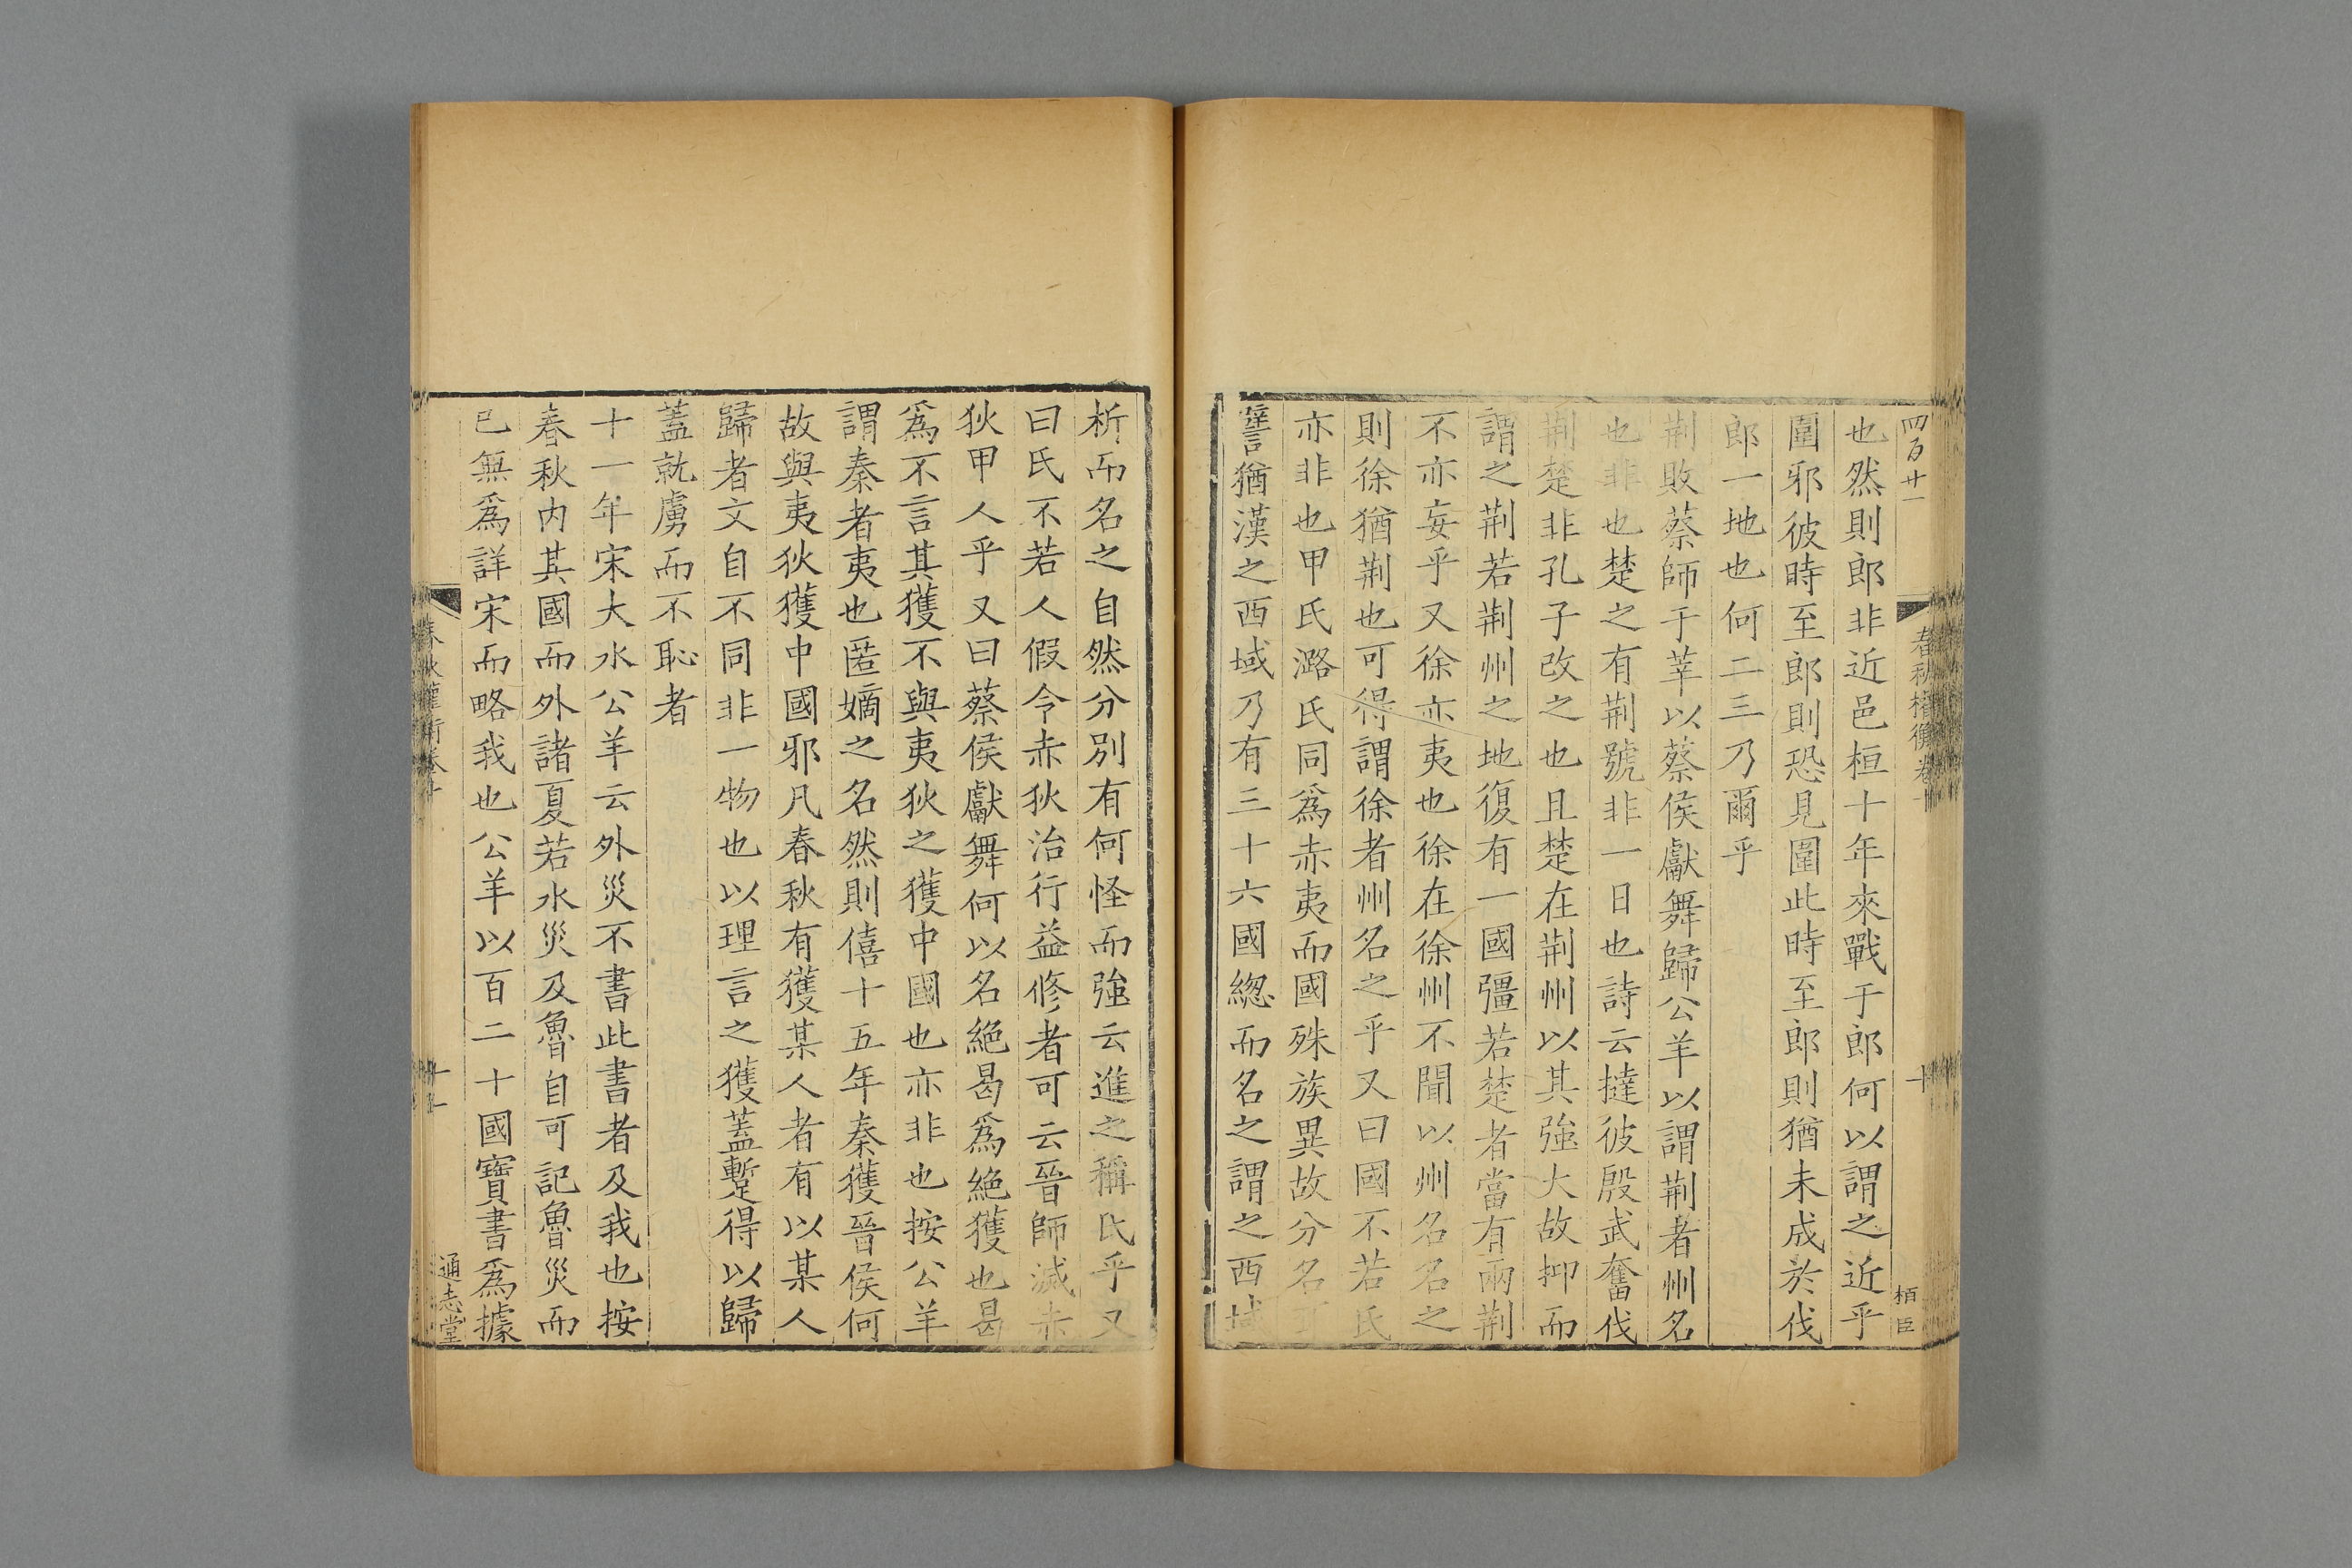 四百廿一
春秋權衡卷十
十
栢臣
也然則郎非近邑桓十年來戰于郎何以謂之近乎
圍邪彼時至郎則恐見圍此時至郎則猶未成於伐
郎一地也何二三乃爾乎
荆敗蔡師于莘以蔡侯獻舞歸公羊以謂荆者州名
也非也楚之有荆號非一日也詩云撻彼殷武奮伐
荆楚非孔子改之也且楚在荆州以其強大故抑而
謂之荆若荆州之地復有一國彊若楚者當有兩荆
不亦妄乎又徐亦夷也徐在徐州不聞以州名名之
則徐猶荆也可得謂徐者州名之乎又曰國不若氏
亦非也甲氏潞氏同為赤夷而國殊族異故分名
譬猶漢之西域乃有三十六國緫而名之謂之西域
析而名之自然分別有何怪而強云進之稱氏乎又
曰氏不若人假令赤狄治行益修者可云晉師滅赤
狄甲人乎又曰蔡侯獻舞何以名絶曷爲絶獲也曷
爲不言其獲不與夷狄之獲中國也亦非也按公羊
謂秦者夷也匿嫡之名然則僖十五年秦獲晉侯何
故與夷狄獲中國邪凡春秋有獲某人者有以某人
歸者文自不同非一物也以理言之獲蓋蹔得以歸
蓋就虜而不恥者
十一年宋大水公羊云外災不書此書者及我也按
春秋内其國而外諸夏若水災及魯自可記魯災而
已無爲詳宋而略我也公羊以百二十國寶書爲據
春秋權衡卷十
十一
通志堂